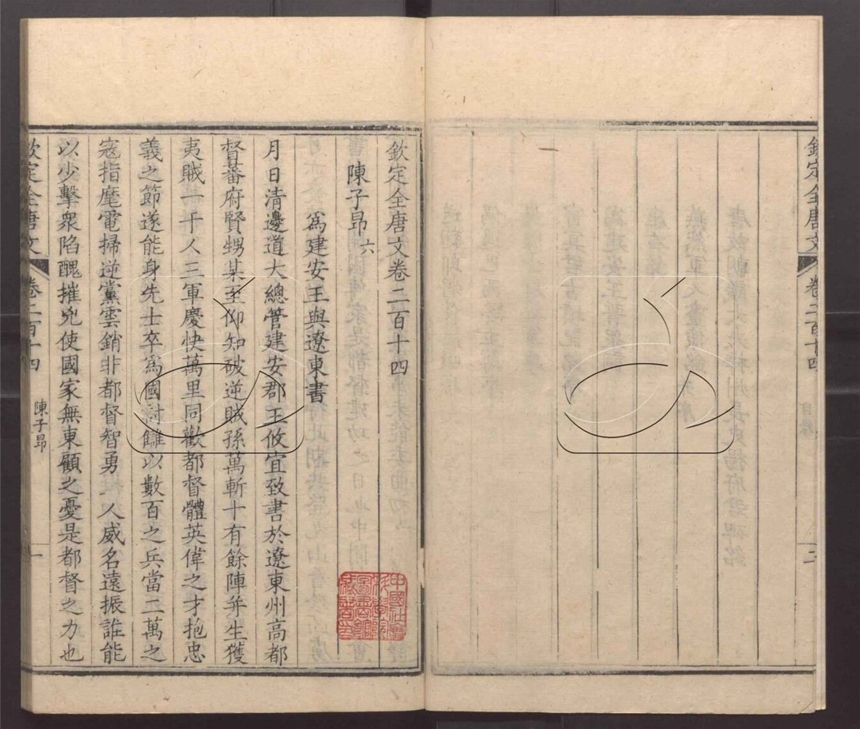 欽定全唐文 卷二百十四 目錄 二
欽定全唐文卷二百十四
陳子昂六
爲建安王與遼東書
月日清邊道大總管建安郡王攸宜致書於遼東州高都
督蕃府賢甥某至仰知破逆賊孫萬斬十有餘陣并生獲
夷賊一千人三軍慶快萬里同歡都督體英偉之才抱忠
義之節遂能身先士卒爲國討讎以數百之兵當二萬之
寇指麾電掃逆黨雲銷非都督智勇 人威名遠振誰能
以少擊衆陷醜摧兇使國家無東顧之憂是都督之力也
欽定全唐文 卷二百十四 陳子昂 一